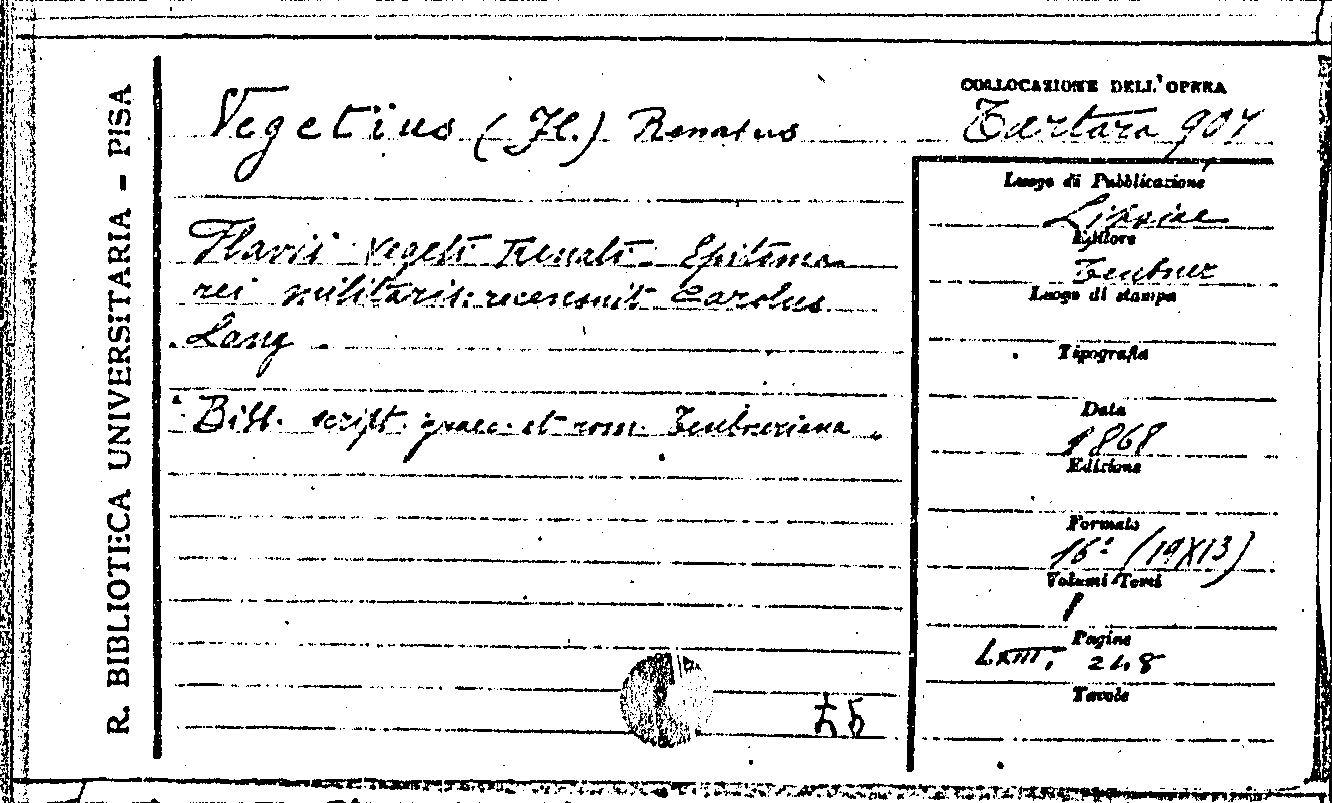 R. BIBLIOTECA UNIVERSITARIA - PISA
Vegetius (Fl.) Renatus
Flavii Vegeti Renati Epitoma
rei militaris: recensuit Carolus
Lang.
Bibl. script. graec. et rom. Teubneriana.
COLLOCAZIONE DELL'OPERA
Tartara 907
Luogo di Pubblicazione
Lipsiae
Editore
Teubner
Luogo di stampa
Tipografia
Data
1868
Edizione
Formato
16° (19X13)
Volumi Tomi
1
Pagine
LXIII; 248
Tavole